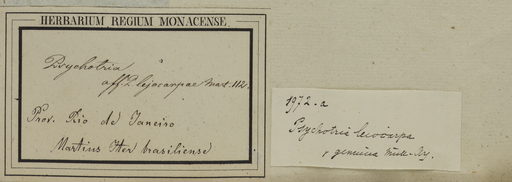 HERBARIUM REGIUM MONACENSE
Psychotria
aff. lejocarpae Mart. 112.
Prov. Rio de Janeiro
Martius Iter brasiliense
1972-a
Psychotria leiocarpa
genuina Müll-Arg.